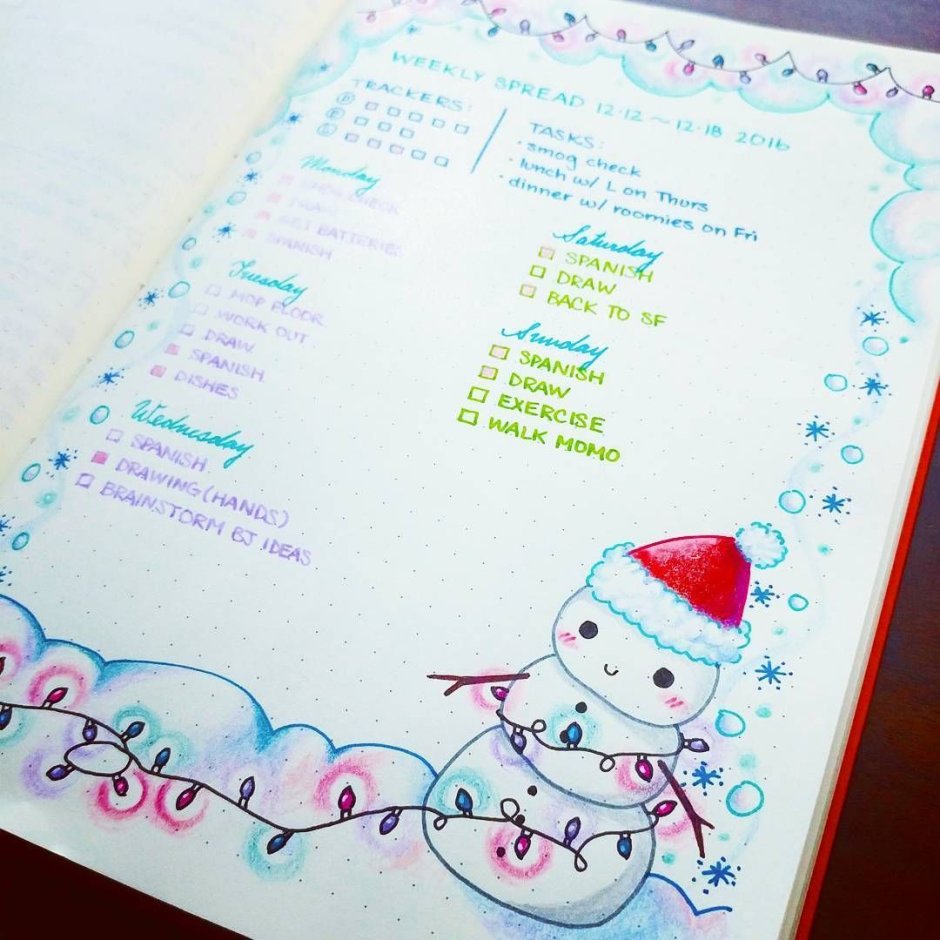 WEEKLY SPREAD 12·12 ~ 12·18 2016
TRACKERS:
TASKS:
• smog check
• lunch w/ L on Thurs
• dinner w/ roomies on Fri
Monday
SMOG CHECK
DRAW
GET BATTERIES
SPANISH
Tuesday
MOP FLOOR
WORK OUT
DRAW
SPANISH
DISHES
Wednesday
SPANISH
DRAWING (HANDS)
BRAINSTORM BJ IDEAS
Saturday
SPANISH
DRAW
BACK TO SF
Sunday
SPANISH
DRAW
EXERCISE
WALK MOMO